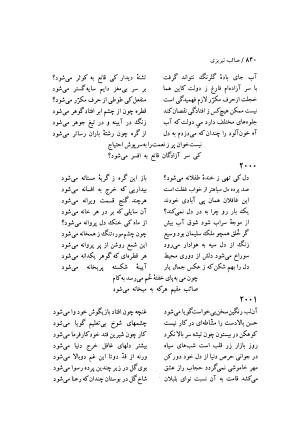 ۸۴۰ / صائب تبریزی
آب جای بادهٔ گلرنگ نتواند گرفت تشنهٔ دیدار کی قانع به کوثر می‌شود؟
با سر آزاده‌ام فارغ ز دولت کاین هما بر سر بی‌مغز دایم سایه‌گستر می‌شود
خجلت از حرف مکرّر لازم فهمیدگی است منفعل کی طوطی از حرف مکرّر می‌شود؟
نیست ممکن هیچ‌کس از افتادگی نقصان کند قطره چون از چشم ابر افتاد گوهر می‌شود
جلوه‌های مختلف دارد می وحدت که آب زنگ در آیینه و در تیغ جوهر می‌شود
آه خون‌آلود را چندان که می‌دزدم به دل در گره چون رشتهٔ باران رساتر می‌شود
نیست‌خوان پر ز نعمت را به سرپوش احتیاج
کی سر آزادگان قانع به افسر می‌شود؟
۲۰۰۰
دل کی تهی ز خندهٔ طفلانه می‌شود؟ باز این گره ز گریهٔ مستانه می‌شود
صد پرده دل سیاهتر از خواب غفلت است بیداریی که خرج به افسانه می‌شود
این غافلان همان پی آبادی خودند هرچند گنج قسمت ویرانه می‌شود
یک بار رو چرا به در دل نمی‌کند؟ آن سایلی که بر در هر خانه می‌شود
از موجهٔ سراب شود شوق آب بیش از ماه کی خنک دل پروانه می‌شود؟
گر خُلق همچو ملک سلیمان بود وسیع چون چشم مور، تنگ ز همخانه می‌شود
زنگ از دل سیه به هوادار می‌رود این شمع روشن از پر پروانه می‌شود
سوراخ می‌شود دلش از دوری محیط هر قطره‌ای که گوهر یکدانه می‌شود
دل را بهم شکن که ز عکس جمال یار آیینهٔ شکسته پریخانه می‌شود
چون می به پای خفتهٔ خُم می‌رسد به کام
صائب مقیم هر که به میخانه می‌شود
۲۰۰۱
آن لب رنگین سخن بی‌خواست گویا می‌شود غنچه چون افتاد بازیگوش خود وا می‌شود
حسن بالادست را مشّاطه‌ای در کار نیست چشم‌های شوخ بی‌تعلیم گویا می‌شود
کوهکن در بیستون چون تیشه سر بالا نکرد کار چون شیرین فتد خود کارفرما می‌شود
روز ابر از شب است شب‌های سیاه بیشتر دلهای غافل خرج دنیا می‌شود
در جوانی حرص دنیا از دل خود دور کن ورنه از قدّ دوتا این غم دوبالا می‌شود
مهر خاموشی نگردد حجاب راز عشق بوی گل در زیر چندین پرده رسوا می‌شود
می‌کشد قامت به آن نسبت نوای بلبلان شاخ گل در بوستان چندان که رعنا می‌شود